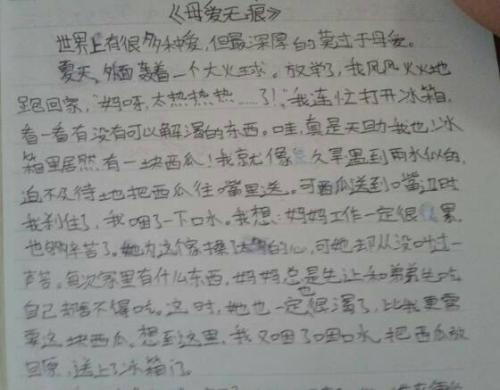 《母爱无痕》
世界上有很多种爱,但最深厚的莫过于母爱。
夏天,外面轰着一个大火球。放学了,我风风火火地
跑回家,“妈呀,太热热热……了!”我连忙打开冰箱,
看一看有没有可以解渴的东西。哇,真是天助我也!冰
箱里居然有一块西瓜!我就像久旱遇到雨水似的,
迫不及待地把西瓜往嘴里送。可西瓜送到嘴边时
我刹住了,我咽了一下口水。我想:妈妈工作一定很累,
也够辛苦了。她为这个家操了的心,可她却从没叫过一
声苦。每次家里有什么东西,妈妈总是先让和弟弟先吃
自己却舍不得吃。这时,她也一定也很渴了,比我更需
要这块西瓜。想到这里,我又咽了咽口水,把西瓜放
回原,送上了冰箱门。